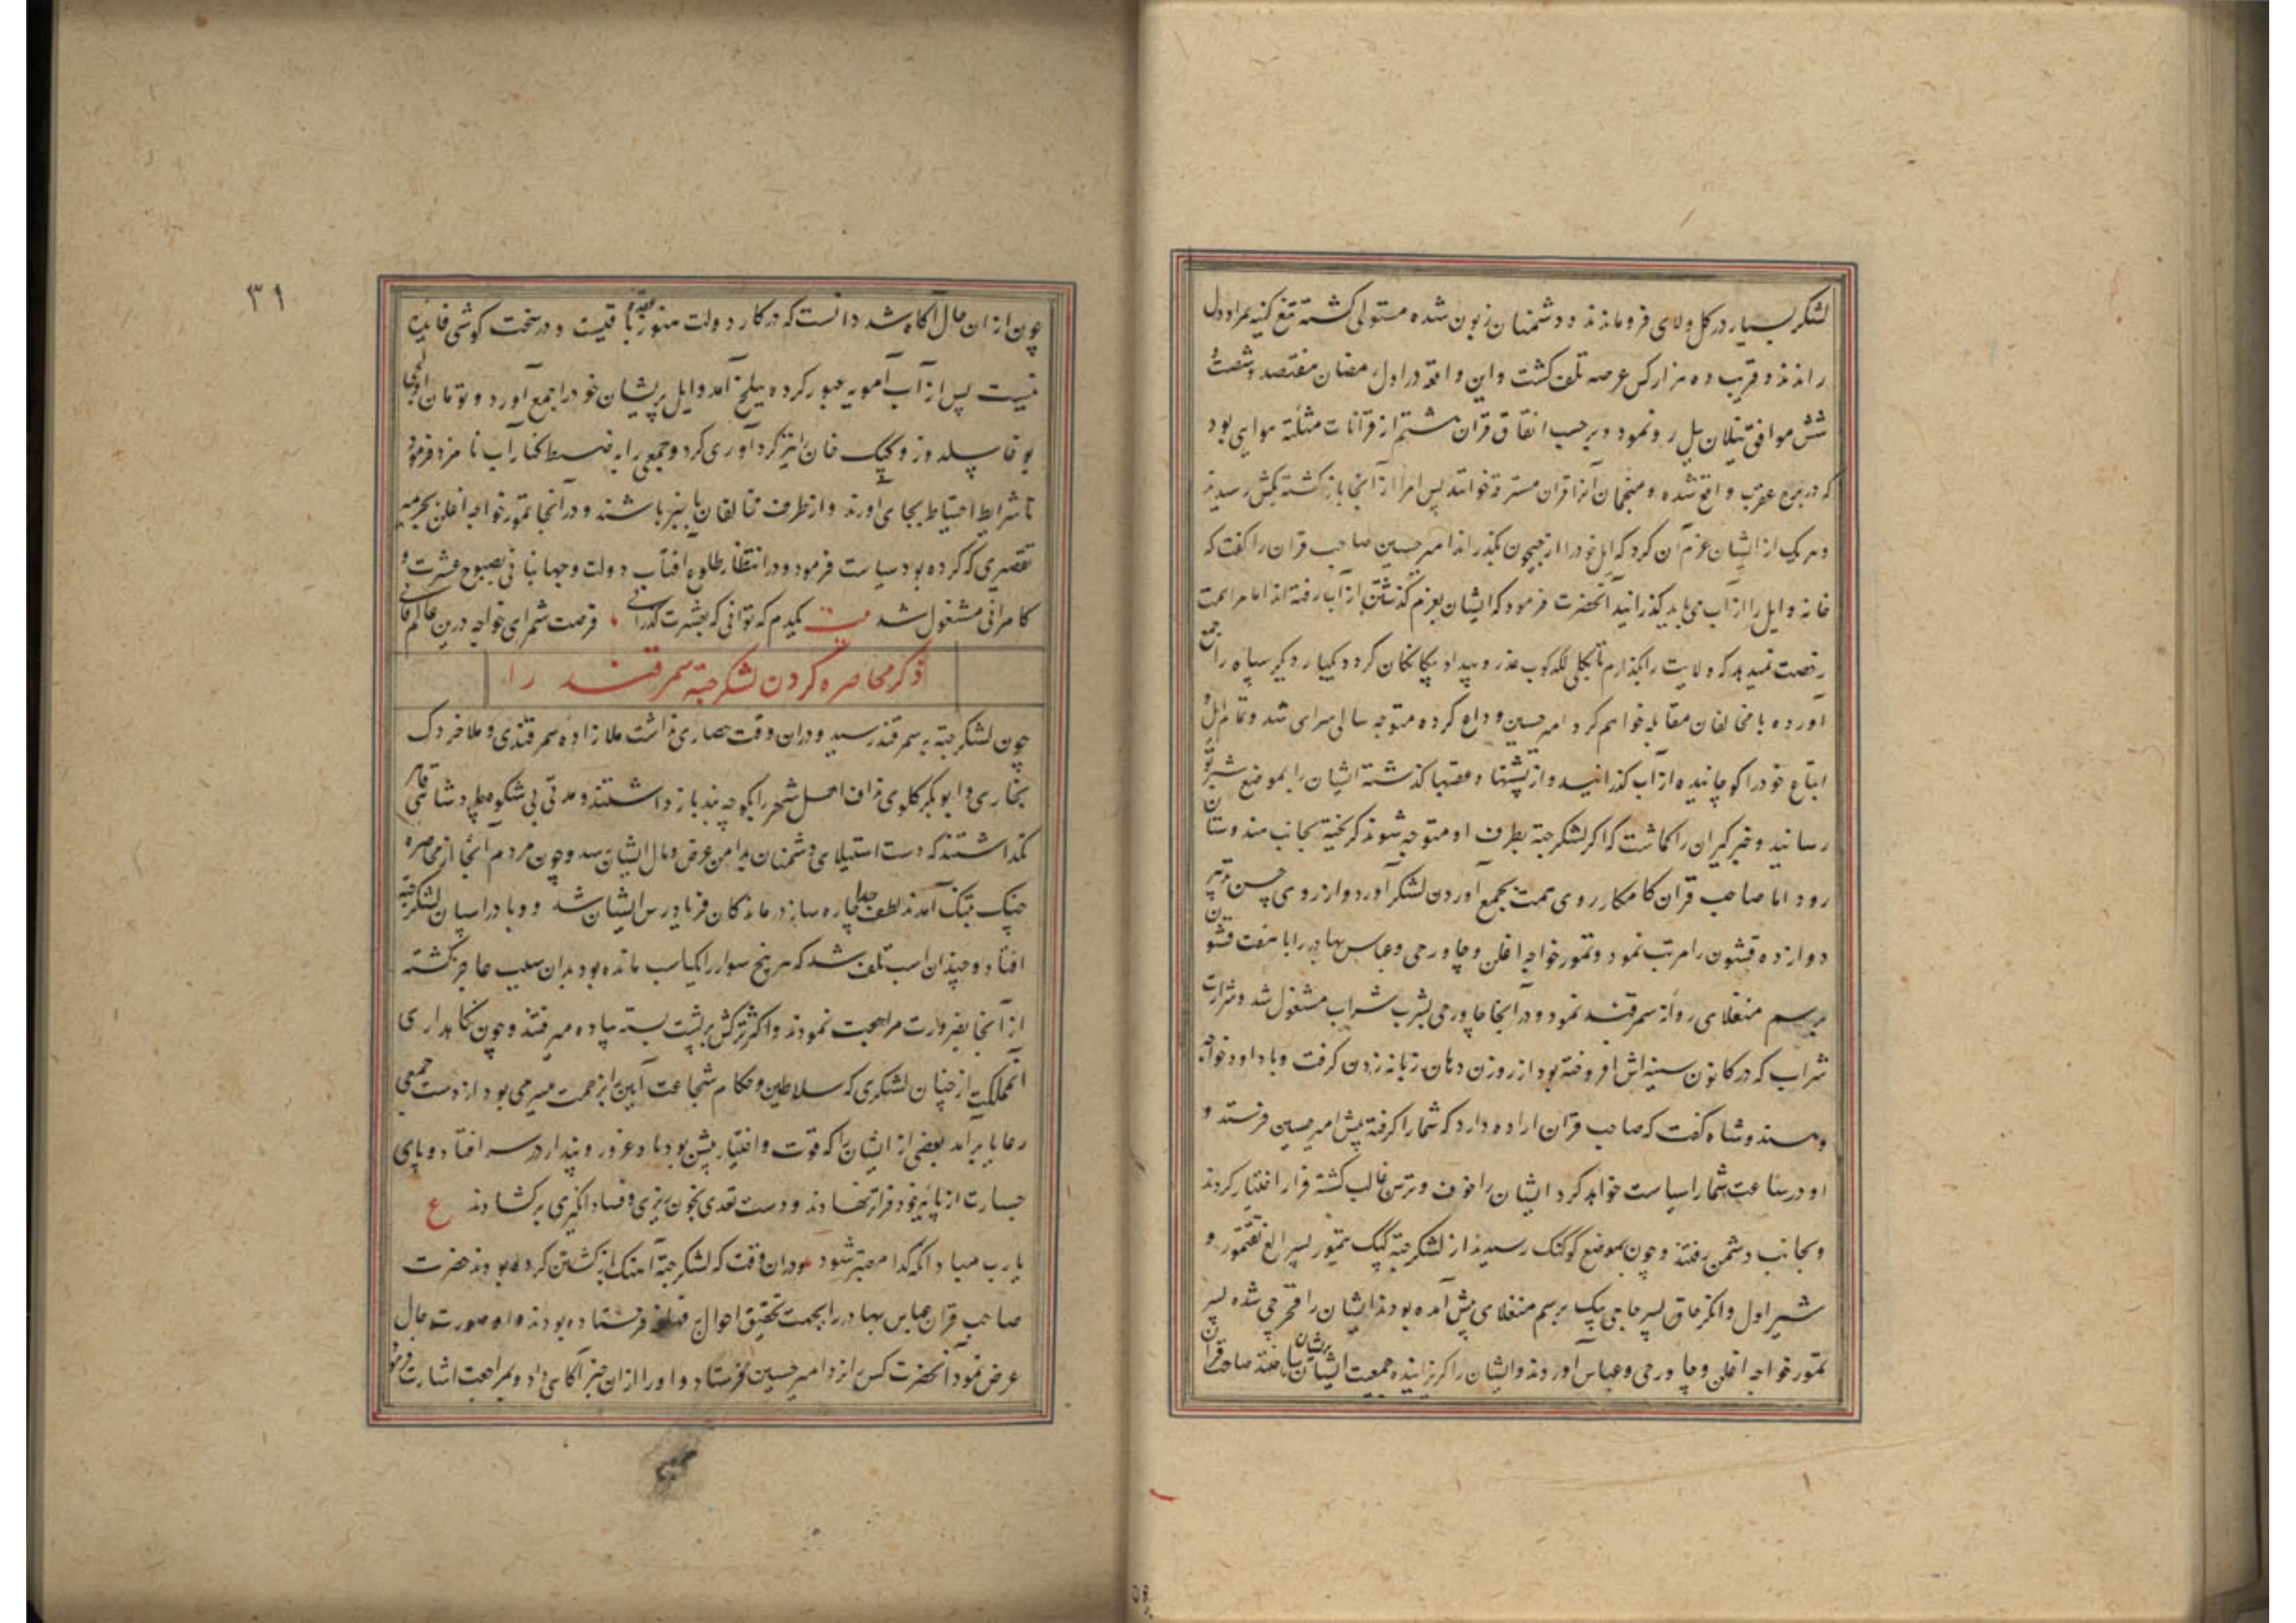 لشکر بسیار در کل ولای فروماندند و دشمنان زبون شده مستولی کشته تیغ کینه بمراد دل
راندند و قریب ده هزار کس عرصه تلف کشت و این واقعه در اول رمضان هفتصد و شصت و
شش موافق ییلان ییل رونمود و بر حسب اتفاق قران هشتم از قرانات مثلثه هوایی بود
که در برج عقرب واقع شده و منجمان آنرا قران مسترقه خوانند پس امرا از آنجا بازکشته بکش رسیدند
و هریک از ایشان عزم آن کرد که ایل خود را از جیحون بکذراند امیر حسین صاحب قران را کفت که
خانه و ایل را از آب می باید کذرانید آنحضرت فرمود که ایشان بعزم کذشتن از آب رفته اند اما مرا همت
رخصت نمیدهد که ولایت را بکذارم تا بکلی لکدکوب عذر و بیداد بیکانکان کردد یکبار دیکر سپاه را جمع
آورده با مخالفان مقابله خواهم کرد امیر حسین وداع کرده متوجه سالی سرای شد و تمام ایل و
اتباع خود را کوچانیده از آب کذرانید و از پشتها و عقبها کذشته ایشان را بموضع شبرتو
رسانید و خبرکیران را کماشت که اکر لشکر جته بطرف او متوجه شوند کریخته بجانب هندوستان
رود اما صاحب قران کامکار روی همت بجمع آوردن لشکر آورد و از روی حسن تدبیر
دوازده قشون را مرتب نمود و تمور خواجه اغلن و چاورجی و عباس بهادر را با هفت قشون
برسم منغلای روانه سمرقند نمود و در آنجا چاورجی بشرب شراب مشغول شد و شرارت
شراب که در کانون سینه اش افروخته بود از روزن دهان زبانه زدن کرفت و با داود خواجه
و هندوشاه کفت که صاحب قران اراده دارد که شما را کرفته پیش امیر حسین فرستد و
او در ساعت شما را سیاست خواهد کرد ایشان را خوف و ترس غالب کشته فرار اختیار کردند
و بجانب دشمن رفتند و چون بموضع کوکنک رسیدند از لشکر جته کپک تیمور پسر الغ تقتمور و
شیر اول و انکرچاق پسر حاجی بیک برسم منغلای پیش آمده بودند ایشان را قجرچی شده بسر
تمور خواجه اغلن و چاورجی و عباس آوردند و ایشان را کریزانیده جمعیت ایشان پریشان ساختند صاحب قران
٣١
چون از ان حال آکاه شد دانست که در کار دولت هنوز عقده باقیست و در سخت کوشی فایده
نیست پس از آب آمویه عبور کرده ببلخ آمد و ایل پریشان خود را جمع آورد و تومان
بوغا سیلدوز و کپک خان نیز کردآوری کرد و جمعی را به ضبط کنار آب نامزد فرمود
تا شرایط احتیاط بجای آورند و از طرف مخالفان باخبر باشند و در آنجا تمور خواجه اغلن بجرمیه
تقصیری که کرده بود سیاست فرمود و در انتظار طلوع افتاب دولت و جهانبانی بصبوح عشرت و
کامرانی مشغول شد بیت یکدم که توانی که بعشرت کذرانی فرصت شمر ای خواجه درین عالم فانی
ذکر محاصره کردن لشکر جته سمرقند را
چون لشکر جته به سمرقند رسید و دران وقت حصاری نداشت ملازاده سمرقندی و ملا خردک
بخاری و ابوبکر کلوی نداف اهل شهر را بکوچه بند باز داشتند و مدتی بی شکوه ملجا و شاهی قاهر
نکذاشتند که دست استیلای دشمنان بدامن عرض و مال ایشان رسد و چون مردم آنجا از محاصره
جنک بتنک آمدند لطف خدا چاره ساز درماندکان فریادرس ایشان شد و وبا در اسپان لشکر جته
افتاد و چندان اسب تلف شد که هر پنج سوار را یک اسب مانده بود بدان سبب عاجز کشته
از آنجا بضرورت مراجعت نمودند و اکثر ترکش بر پشت بسته پیاده میرفتند و چون نکاهداری
آنمملکت از چنان لشکری که سلاطین و حکام شجاعت آیین را بزحمت میسر می بود از دست جمعی
رعایا برآمد بعضی از ایشان را که قوت و اختیار بیش بود باد غرور و پندار در سر افتاد و پای
جسارت از پایه خود فراتر نهادند و دست تعدی بخون ریزی و فساد انکیزی برکشادند ع
یارب مباد آنکه کدا معتبر شود و دران وقت که لشکر جته آهنک بازکشتن کرده بودند حضرت
صاحب قران عباس بهادر را بجهت تحقیق احوال قهلغه فرستاده بودند و او صورت حال
عرض نمود آنحضرت کس نزد امیر حسین فرستاد و او را از ان خبر آکاهی داد و بمراجعت اشارت فرمود